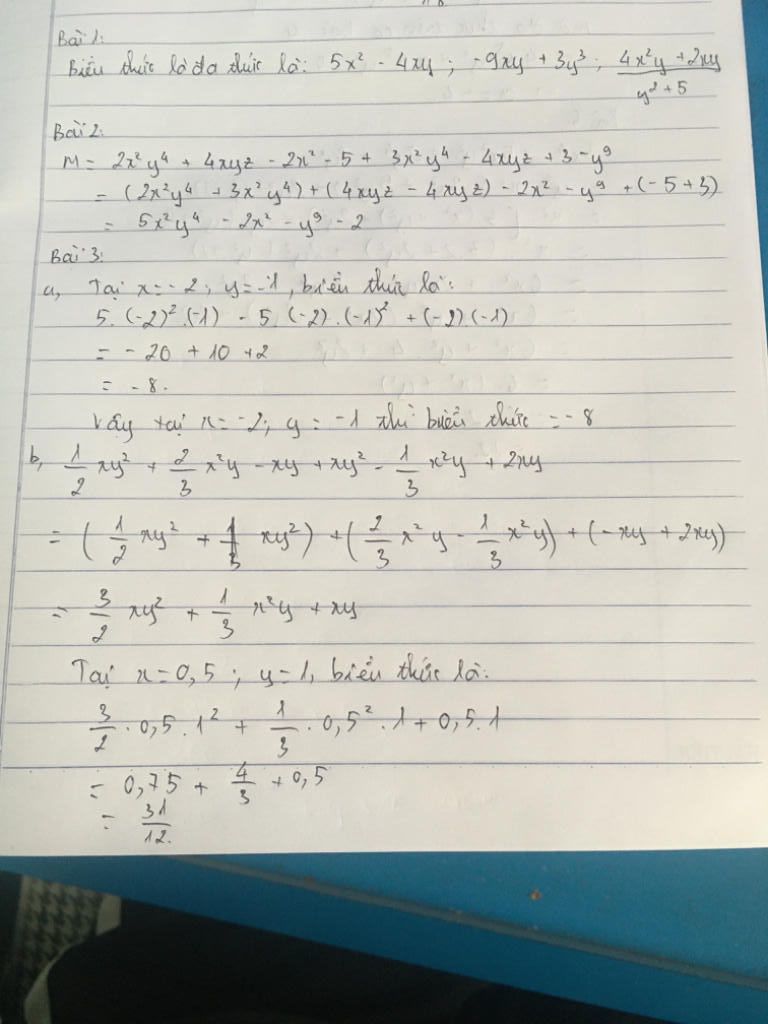 Bài 1:
Biểu thức là đa thức là: 5x² - 4xy ; -9xy + 3y³ ; (4x²y + 2xy)/(y² + 5)
Bài 2:
M = 2x²y⁴ + 4xyz - 2x² - 5 + 3x²y⁴ - 4xyz + 3 - y⁹
= (2x²y⁴ + 3x²y⁴) + (4xyz - 4xyz) - 2x² - y⁹ + (-5 + 3)
= 5x²y⁴ - 2x² - y⁹ - 2
Bài 3:
a, Tại x = -2 ; y = -1, biểu thức là:
5. (-2)² . (-1) - 5. (-2) . (-1)² + (-2) . (-1)
= -20 + 10 + 2
= -8.
Vậy tại x = -2; y = -1 thì biểu thức = -8
b, 1/2 xy² + 2/3 x²y - xy + xy² - 1/3 x²y + 2xy
= (1/2 xy² + xy²) + (2/3 x²y - 1/3 x²y) + (-xy + 2xy)
= 3/2 xy² + 1/3 x²y + xy
Tại x = 0,5 ; y = 1, biểu thức là:
3/2 . 0,5 . 1² + 1/3 . 0,5² . 1 + 0,5 . 1
= 0,75 + 4/3 + 0,5
= 31/12.